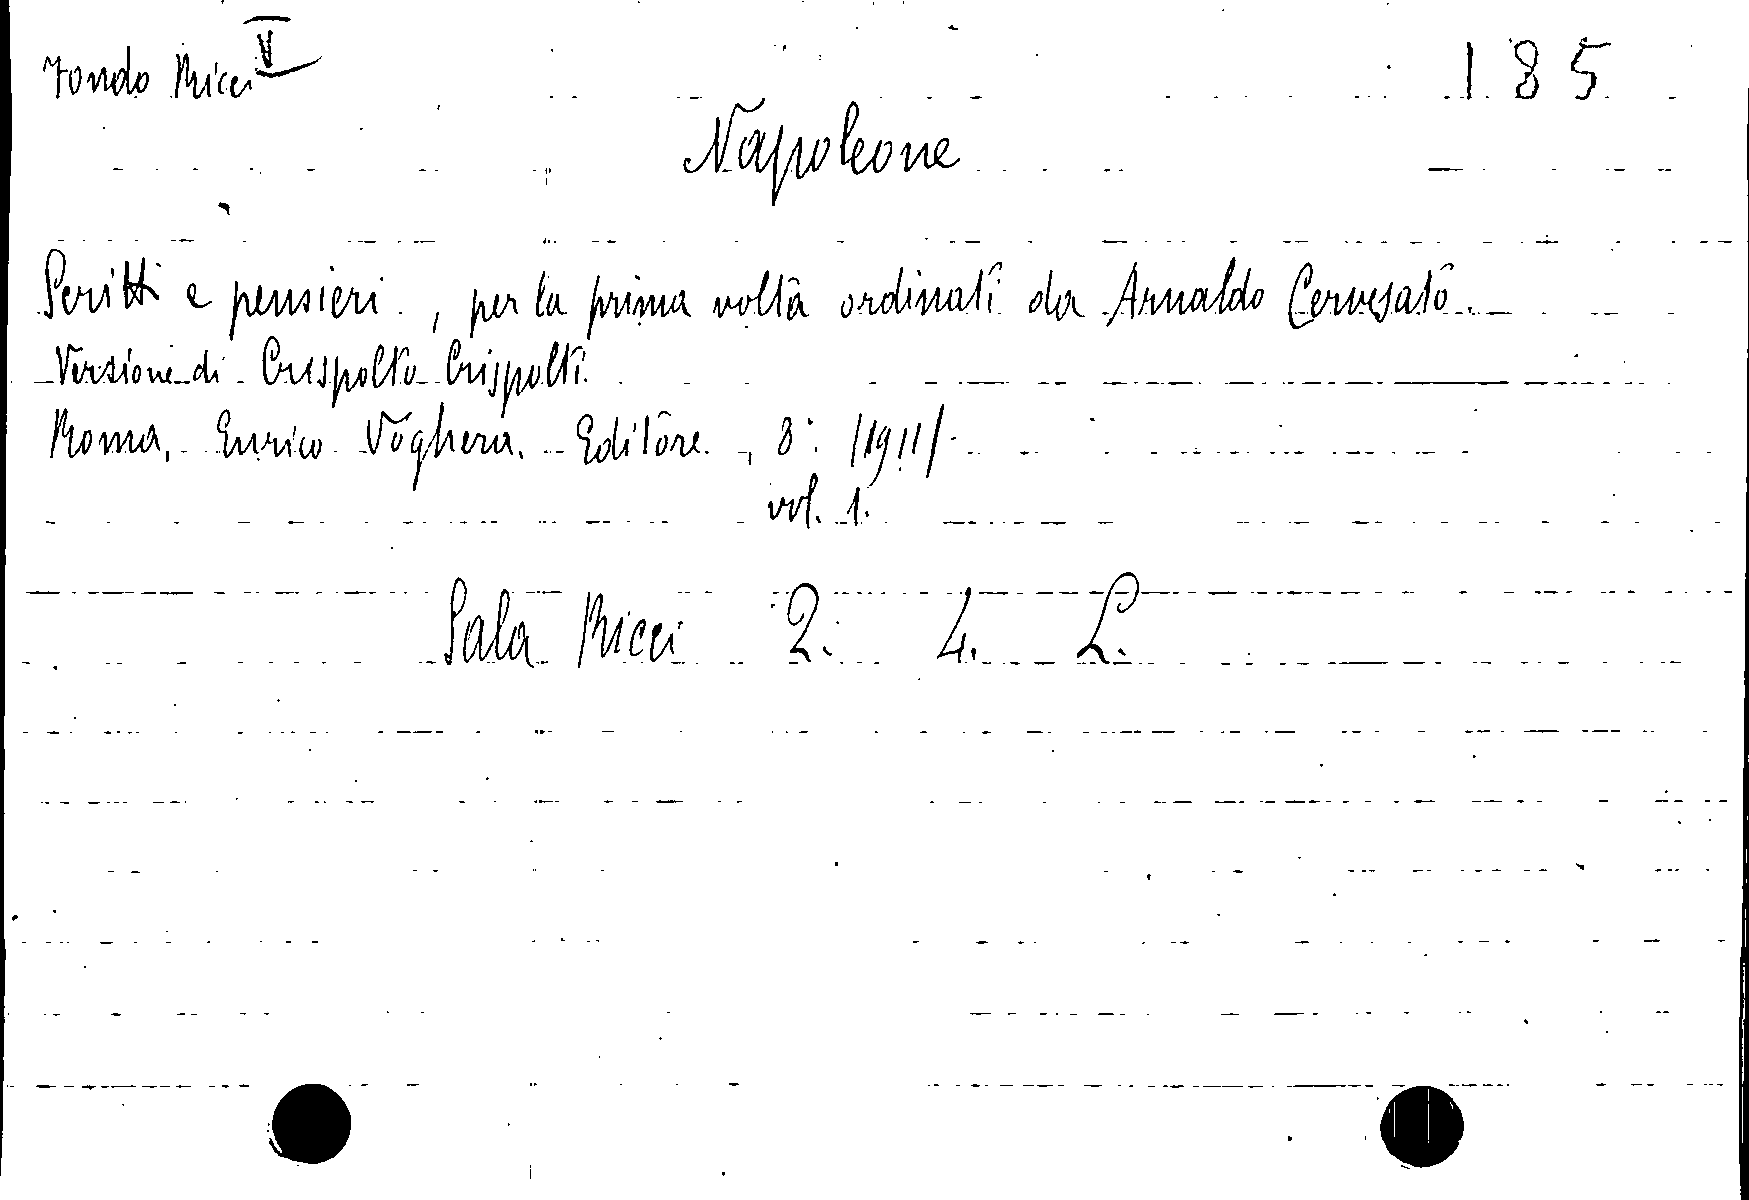 Fondo Ricci V 185
Napoleone
Scritti e pensieri., per la prima volta ordinati da Arnaldo Cervesato.
Versione di Crispolto Crispolti.
Roma, Enrico Voghera. Editore., 8° /1911/.
vol. 1.
Sala Ricci 2. 4. L.